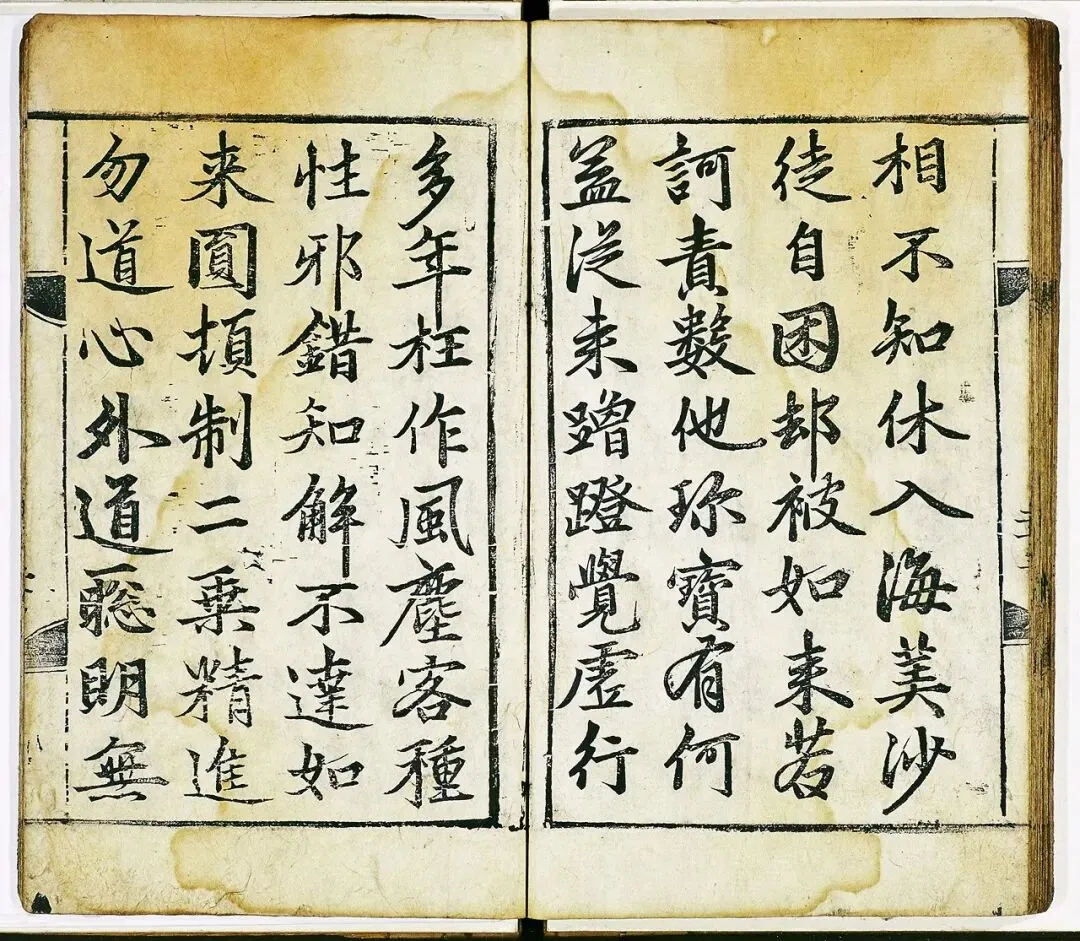 相不知休入海筭沙
徒自困却被如来苦
訶責數他珎寶有何
益從来蹭蹬覺虛行
多年枉作風塵客種
性邪錯知解不達如
来圓頓制二乗精進
勿道心外道聡明無